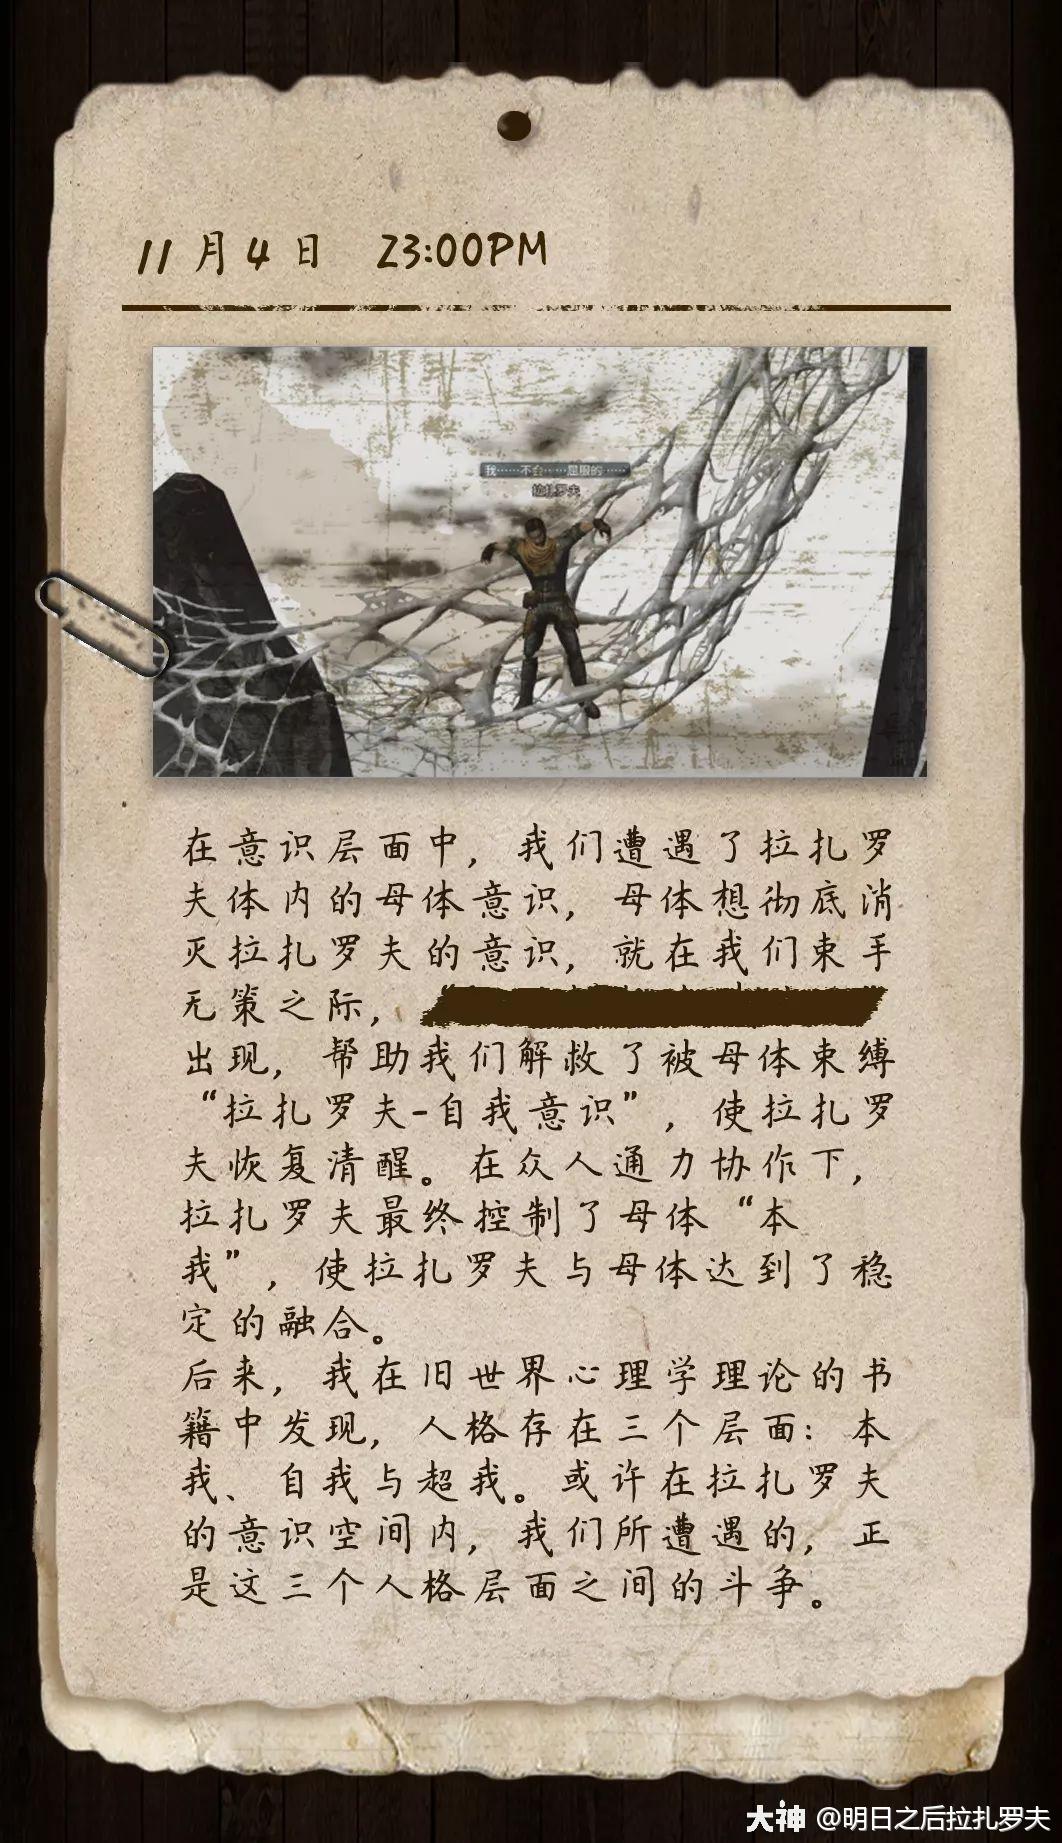 11月4日 23:00PM
我……不会……屈服的……
拉扎罗夫
在意识层面中，我们遭遇了拉扎罗
夫体内的母体意识，母体想彻底消
灭拉扎罗夫的意识，就在我们束手
无策之际，
出现，帮助我们解救了被母体束缚
“拉扎罗夫-自我意识”，使拉扎罗
夫恢复清醒。在众人通力协作下，
拉扎罗夫最终控制了母体“本
我”，使拉扎罗夫与母体达到了稳
定的融合。
后来，我在旧世界心理学理论的书
籍中发现，人格存在三个层面：本
我、自我与超我。或许在拉扎罗夫
的意识空间内，我们所遭遇的，正
是这三个人格层面之间的斗争。
大神 @明日之后拉扎罗夫